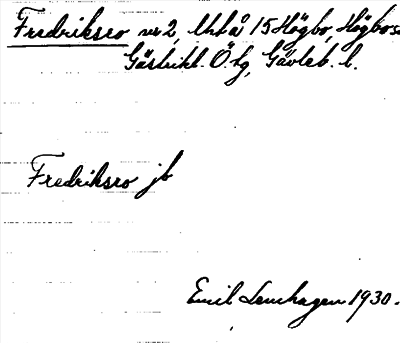 Fredriksro nr 2, Uhlå 15 Högbo, Högbo s
Gästrikl. Ö. tg, Gävleb. l.
Fredriksro jb
Emil Lenhagen 1930.